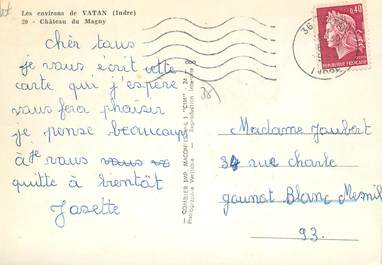 Les environs de VATAN (Indre)
20 - Château du Magny
chèr tous
je vous écrit cette
carte qui j'espère
vous fera plaisir
je pense beaucoup
à je vous vous
quitte à bientôt
Josette
COMBIER IMP. MACON
"CIM"
Photographie Véritable - Reproduction interdite
38
36
0,40
REPUBLIQUE FRANÇAISE
Madame Joubert
34 rue charle
gounot Blanc Mesnil
93.